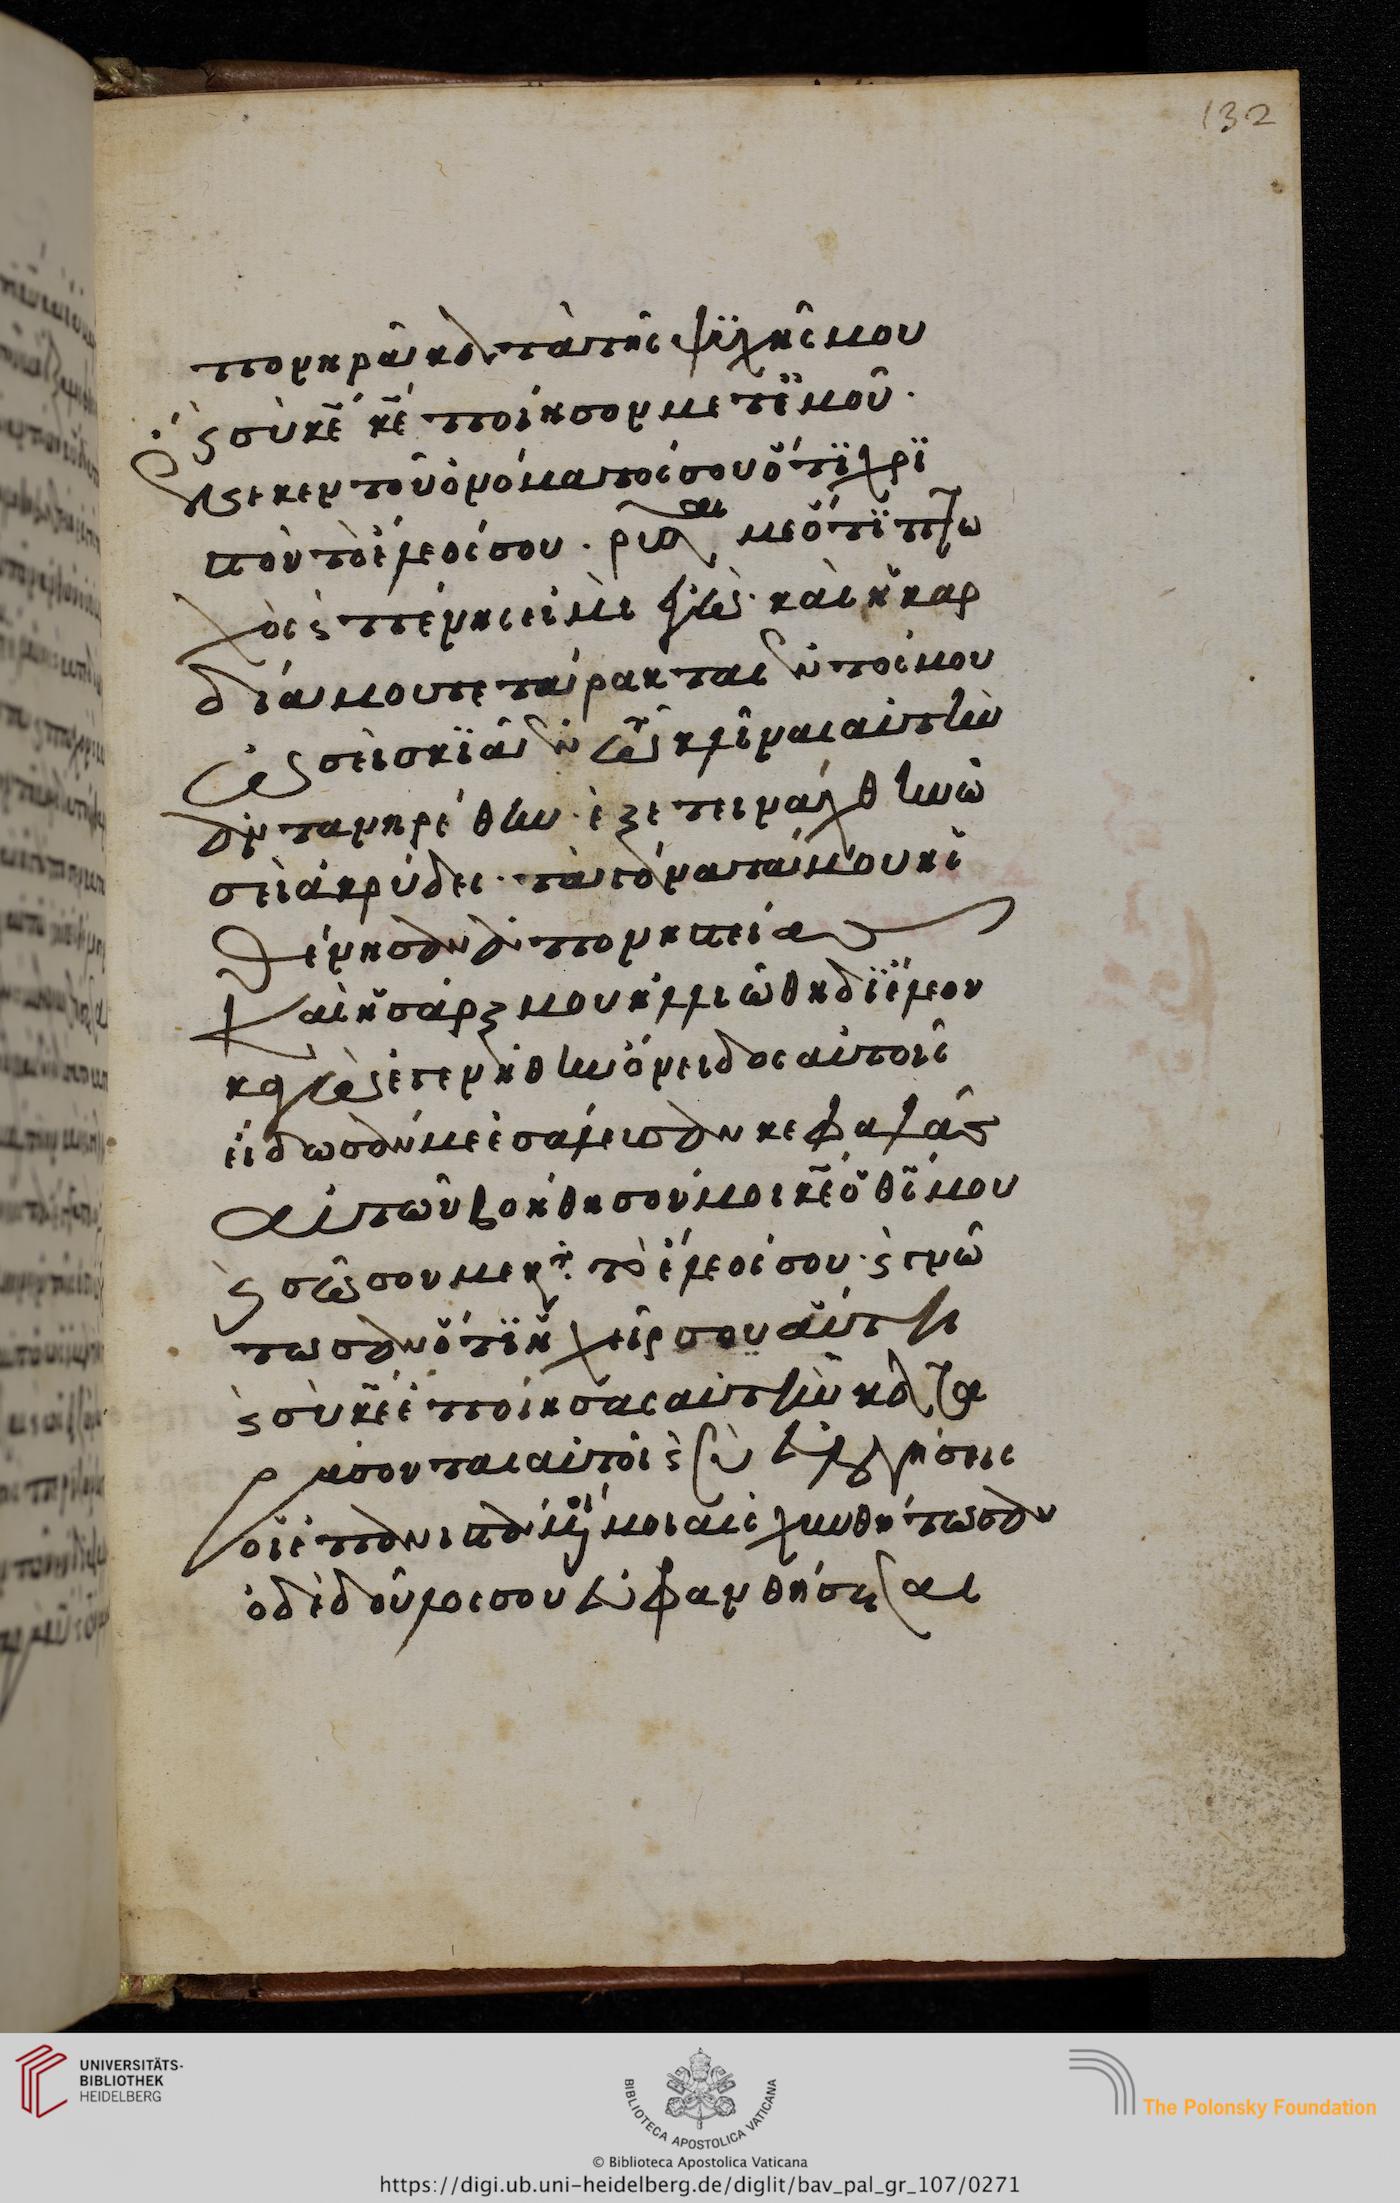 132
πονηρὰ κατὰ τῆς ψϋχῆς μου
ϛ σὺ κε κε ποίησον μετ ἐμοῦ·
ἕνεκεν τοῦ ὀνόματός σου ὅτϊ χρϊ
στὸν τὸ ἔλεός σου. ρῦσαι με ὅτϊ πτω
χὸς ϛ πένης εἰμι ἐγὼ· καὶ ἡ καρ
δία μου τετάρακται ἐντός μου
ὡσεὶ σκϊὰ ἐν τῷ ἐκκλῖναι αὐτὴν
ἀντανηρέθην· ἐξετεινάχθην ὡ
σεὶ ἀκρύδες· τὰ γόνατά μου ἠ
σθένησαν ἀπὸ νηστείας
Καὶ ἡ σάρξ μου ἠλλιώθη δϊ ἔλεον
κἀγὼ ἐγενήθην ὄνειδος αὐτοῖς
εἴδωσάν με ἐσάλευσαν κεφαλὰς
αὐτῶν βοήθησόν μοι κε ὁ θς μου
ϛ σῶσον με κατὰ τὸ ἔλεός σου· ϛ γνώ
τωσαν ὅτϊ ἡ χείρ σου αὕτη
ϛ σὺ κε ἐποίησας αὐτὴν καταρ
άσονται αὐτοὶ ϛ σὺ εὐλογήσεις
οἱ ἐπανιστάμενοί μοι αἰσχυνθήτωσαν
ὁ δὲ δοῦλος σου εὐφρανθήσεται
UNIVERSITÄTS-
BIBLIOTHEK
HEIDELBERG
BIBLIOTECA APOSTOLICA VATICANA
The Polonsky Foundation
© Biblioteca Apostolica Vaticana
https://digi.ub.uni-heidelberg.de/diglit/bav_pal_gr_107/0271